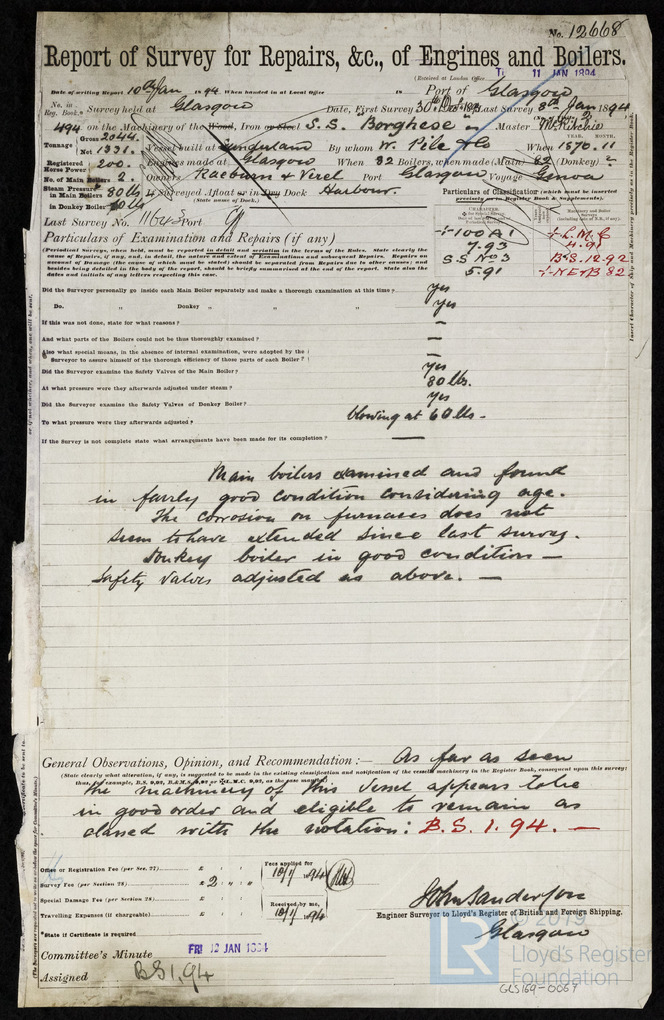 No. 12668
Report of Survey for Repairs, &c., of Engines and Boilers.
(Received at London Office 11 JAN 1894
Date of writing Report 10th Jan 1894 When handed in at Local Office 18 Port of Glasgow
No. in Reg. Book. Survey held at Glasgow Date, First Survey Last Survey 8th Jan 1894
494 on the Machinery of the Wood, Iron or Steel S.S. "Borghese" Master
Tonnage Gross 2044. Net 1331. Vessel built at Sunderland By whom W. Pile & Co When 1870.11
Registered Horse Power 200. Engines made at Glasgow When 82 Boilers, when made (Main) 82 (Donkey)
No. of Main Boilers 2. Owners Raeburn & Verel Port Glasgow Voyage Genoa
Steam Pressure in Main Boilers 80 lbs If Surveyed Afloat or in Dry Dock Harbour.
(State name of Dock.)
in Donkey Boiler 60 lbs
Particulars of Classification (which must be inserted precisely as in Register Book & Supplements).
Last Survey No. Port
100A1
7.93
SS No 3
5.91
L.M.C
4.91
B.S. 12.92
N.E&B 82
Particulars of Examination and Repairs (if any)
(Periodical Surveys, when held, must be reported in detail and seriatim in the terms of the Rules. State clearly the cause of Repairs, if any, and, in detail, the nature and extent of Examinations and subsequent Repairs. Repairs on account of Damage (the cause of which must be stated) should be separated from Repairs due to other causes; and besides being detailed in the body of the report, should be briefly summarised at the end of the report. State also the dates and initials of any letters respecting this case.
Did the Surveyor personally go inside each Main Boiler separately and make a thorough examination at this time? Yes
Do. „ Donkey „ „ „ Yes
If this was not done, state for what reasons? —
And what parts of the Boilers could not be thus thoroughly examined? —
Also what special means, in the absence of internal examination, were adopted by the Surveyor to assure himself of the thorough efficiency of those parts of each Boiler? —
Did the Surveyor examine the Safety Valves of the Main Boiler? Yes
At what pressure were they afterwards adjusted under steam? 80 lbs.
Did the Surveyor examine the Safety Valves of Donkey Boiler? Yes
To what pressure were they afterwards adjusted? blowing at 60 lbs.
If the Survey is not complete state what arrangements have been made for its completion? —
Main boilers examined and found
in fairly good condition considering age.
The corrosion on furnaces does not
seem to have extended since last survey.
Donkey boiler in good condition —
Safety Valves adjusted as above. —
General Observations, Opinion, and Recommendation:— As far as seen
(State clearly what alteration, if any, is suggested to be made in the existing classification and notification of the vessel's machinery in the Register Book, consequent upon this survey:
the machinery of this vessel appears to be
in good order and eligible to remain as
classed with the notation: B.S. 1. 94. —
Office or Registration Fee (per Sec. 27) £ : :
Survey Fee (per Section 28) £ 2 : :
Special Damage Fee (per Section 28) £ : :
Travelling Expenses (if chargeable) £ : :
Fees applied for 10/1/1894
Received by me, 10/1/1894
*State if Certificate is required
John Sanderson
Engineer Surveyor to Lloyd's Register of British and Foreign Shipping.
Glasgow
Committee's Minute FRI 12 JAN 1894
Assigned BS 1,94
© 2019
LR
Lloyd's Register
Foundation
GLS169-0067